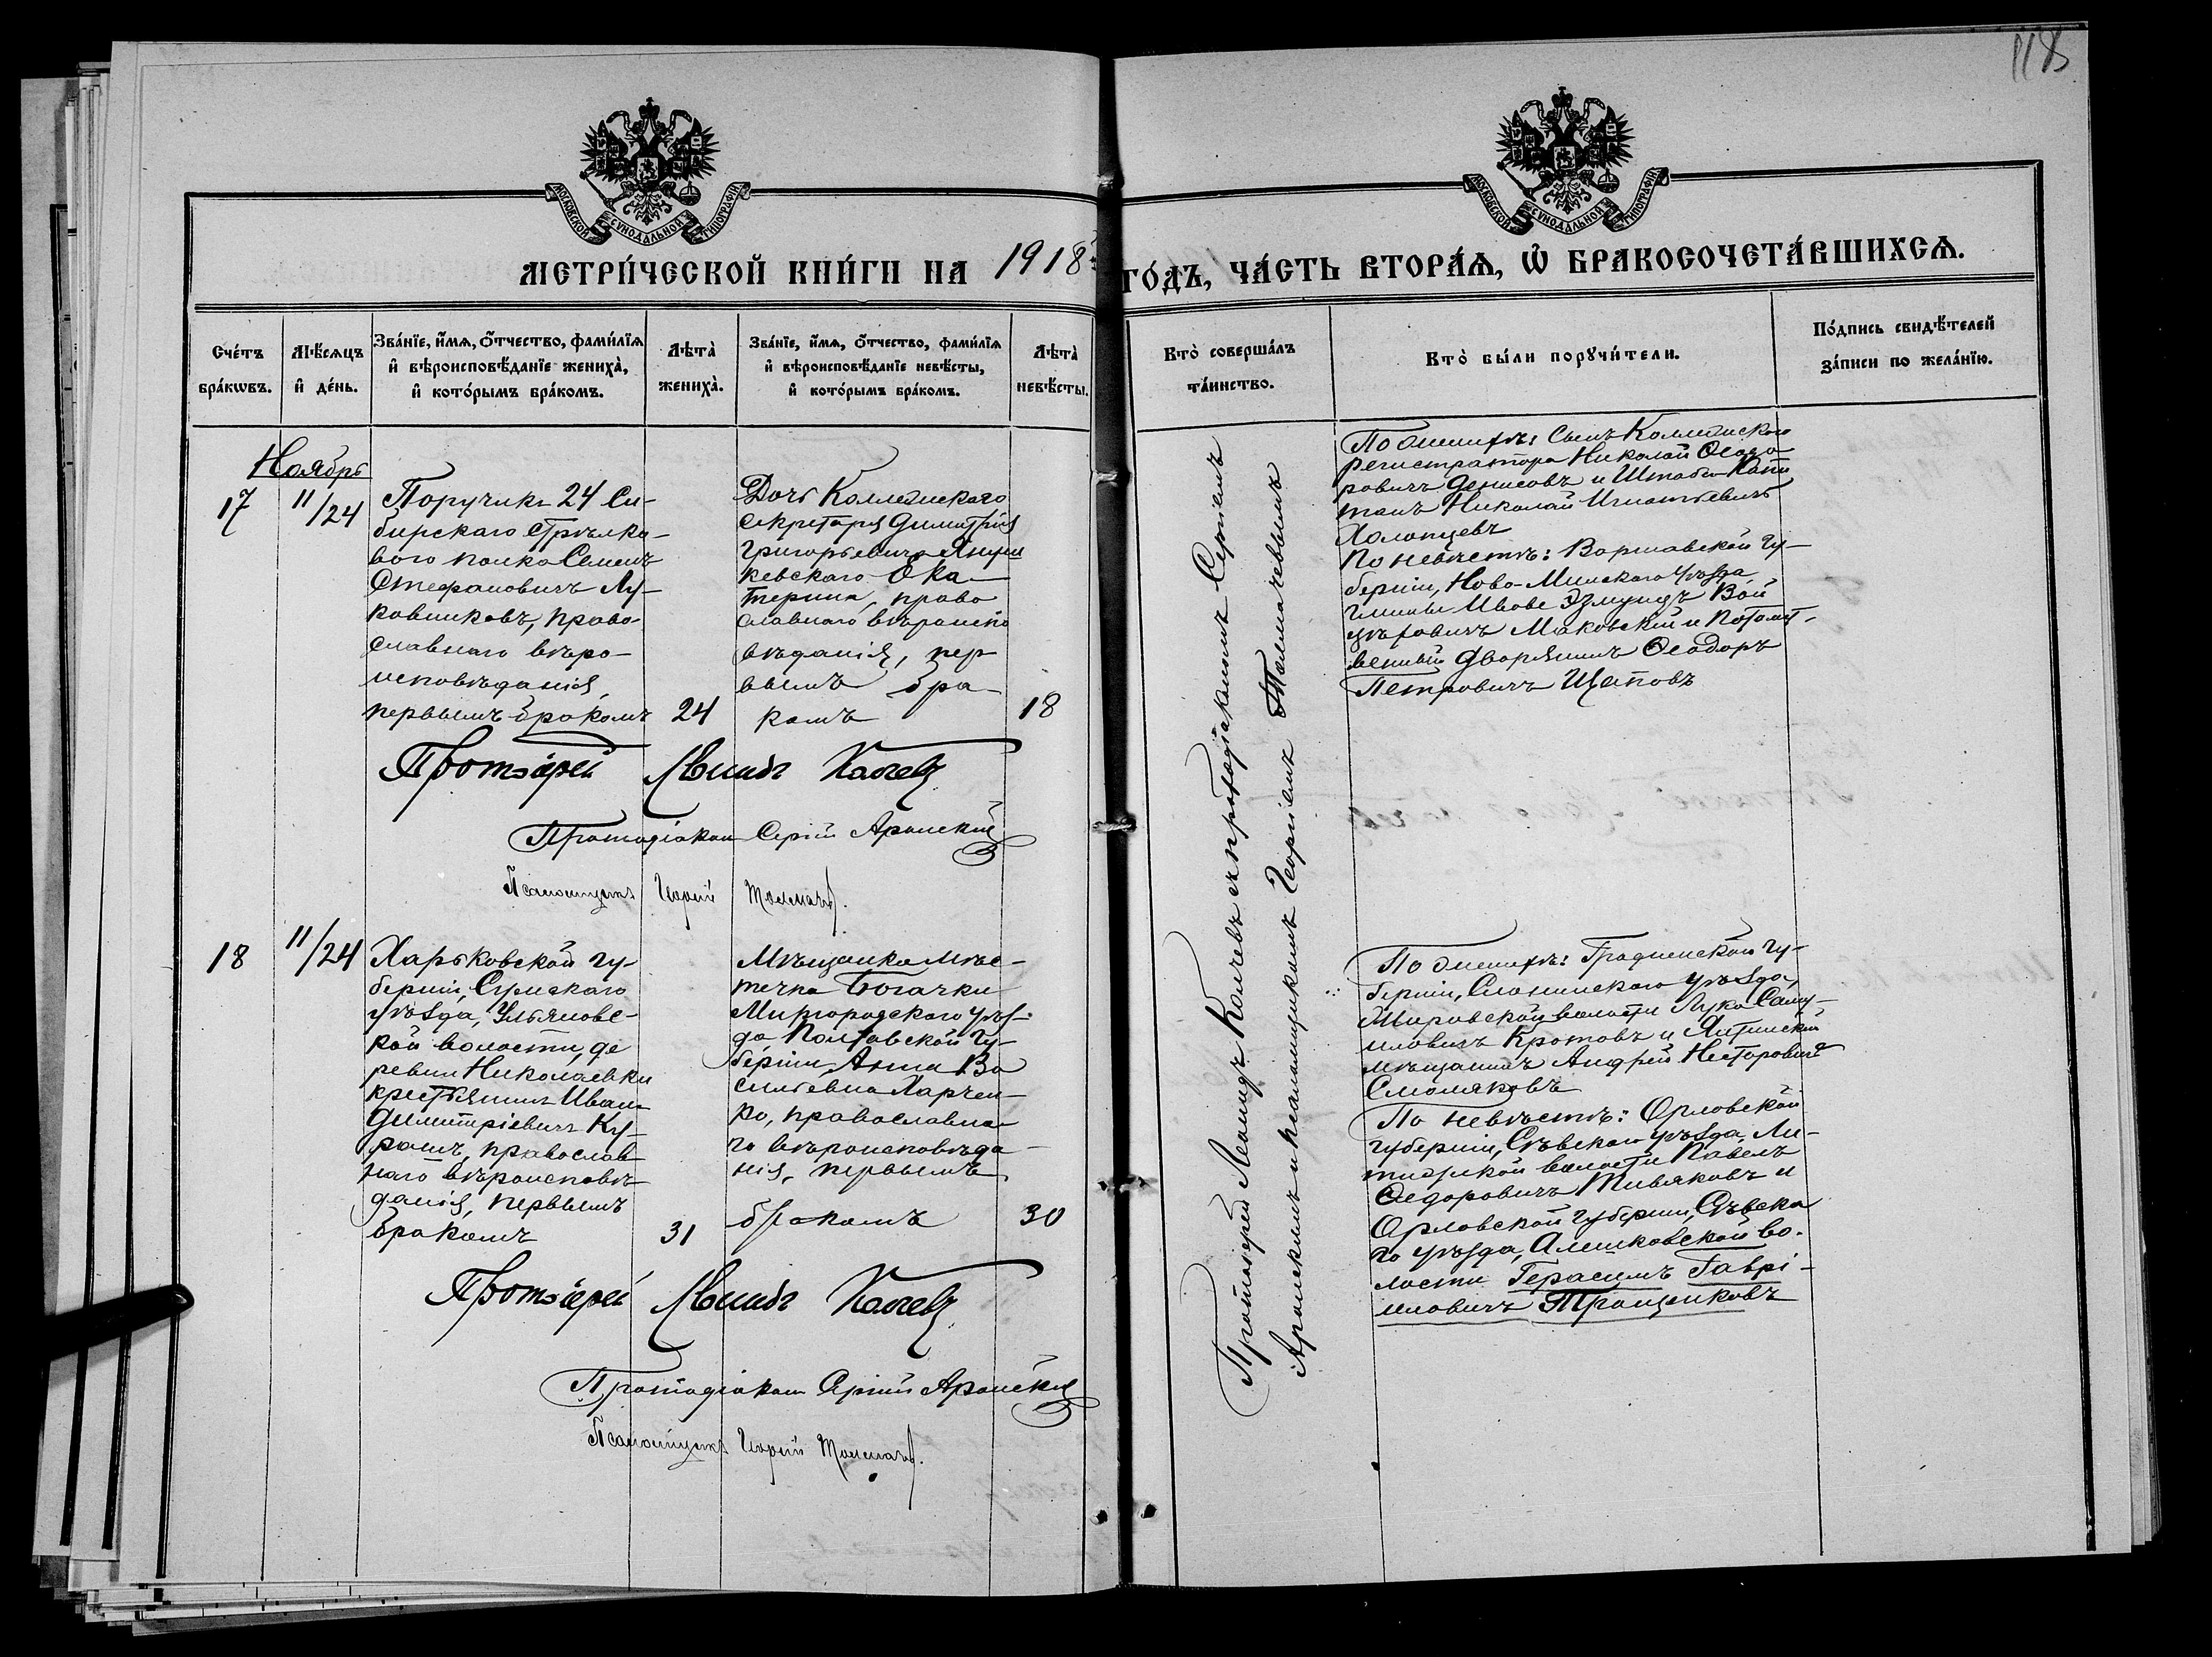 118
МОСКОВСКОЙ СѴНОДАЛЬНОЙ ТИПОГРАФІИ
МОСКОВСКОЙ СѴНОДАЛЬНОЙ ТИПОГРАФІИ
МЕТРИ́ЧЕСКОЙ КНИ́ГИ НА 1918 ГО́ДЪ, ЧА́СТЬ ВТОРА́Ѧ, Ѽ БРАКОСОЧЕТА́ВШИХСѦ.
Сче́тъ
бра́кѡвъ.
Мѣ́сѧцъ
и҆ де́нь.
Зва́нїе, и҆́мѧ, ѻ҆́тчество, фами́лїѧ
и҆ вѣроисповѣ́данїе жениха̀,
и҆ кото́рымъ бра́комъ.
Лѣта̀
жениха̀.
Зва́нїе, и҆́мѧ, ѻ҆́тчество, фами́лїѧ
и҆ вѣроисповѣ́данїе невѣ́сты,
и҆ кото́рымъ бра́комъ.
Лѣта̀
невѣ́сты.
Кто̀ соверша́лъ
та́инство.
Кто̀ бы́ли порꙋчи́тели.
По́дпись свидѣ́телей
за́писи по жела́нїю.
Ноябрь
17
11/24
Поручикъ 24 Си-
бирскаго стрѣлко-
вого полка Семенъ
Стефановичъ Лу-
ковниковъ, право-
славнаго вѣро-
исповѣданія,
первымъ бракомъ
24
Дочь Коллежскаго
секретаря Димитрія
Григорьевича Януш
кевскаго Ека-
терина, право
славнаго вѣроиспо
вѣданія, пер
вымъ бра-
комъ
18
Протоіерей Леонидъ Колчевъ
Протодіаконъ Сергій Аронскій
Псаломщикъ Георгій Толмачевъ.
Протоіерей Леонидъ Колчевъ съ протодіакономъ Сергіемъ
Аронскимъ и псаломщикомъ Георгіемъ Толмачевымъ
По женихѣ: Сынъ Коллежскаго
регистратора Николай Ѳеодо-
ровичъ Денисовъ и Штабсъ-Капи
танъ Николай Игнатьевичъ
Холопцевъ
По невѣстѣ: Варшавской гу-
берніи, Ново-Минскаго уѣзда
гмины Ивове Эдмундъ Вой
цѣховичъ Маковскій и потомст-
венный дворянинъ Ѳеодоръ
Петровичъ Щаповъ
18
11/24
Харьковской гу-
берніи, Сумскаго
уѣзда, Ульяновс-
кой волости, де
ревни Николаевки
крестьянинъ Иванъ
Димитріевичъ Ку-
ромъ, православ
наго вѣроисповѣ-
данія, первымъ
бракомъ
31
Мѣщанка мѣс-
течка Богачки
Миргородскаго уѣз-
да Полтавской гу-
берніи, Анна Ва
сильевна Харчен-
ко, православна-
го вѣроисповѣда-
нія, первымъ
бракомъ
30
По женихѣ: Гродненской гу-
берніи, Слонимскаго уѣзда,
Мировской волости Лука Саму-
иловичъ Кротовъ и Ялтинскій
мѣщанинъ Андрей Несторовичъ
Смоляковъ
По невѣстѣ: Орловской
губерніи, Сѣвскаго уѣзда, Ли-
тижской волости Павелъ
Ѳедоровичъ Тивяковъ и
Орловской губерніи, Сѣвска
го уѣзда, Алешковской во-
лости Герасимъ Гаврі-
иловичъ Трощенковъ
Протоіерей Леонидъ Колчевъ
Протодіаконъ Сергій Аронскій
Псаломщикъ Георгій Толмачевъ.